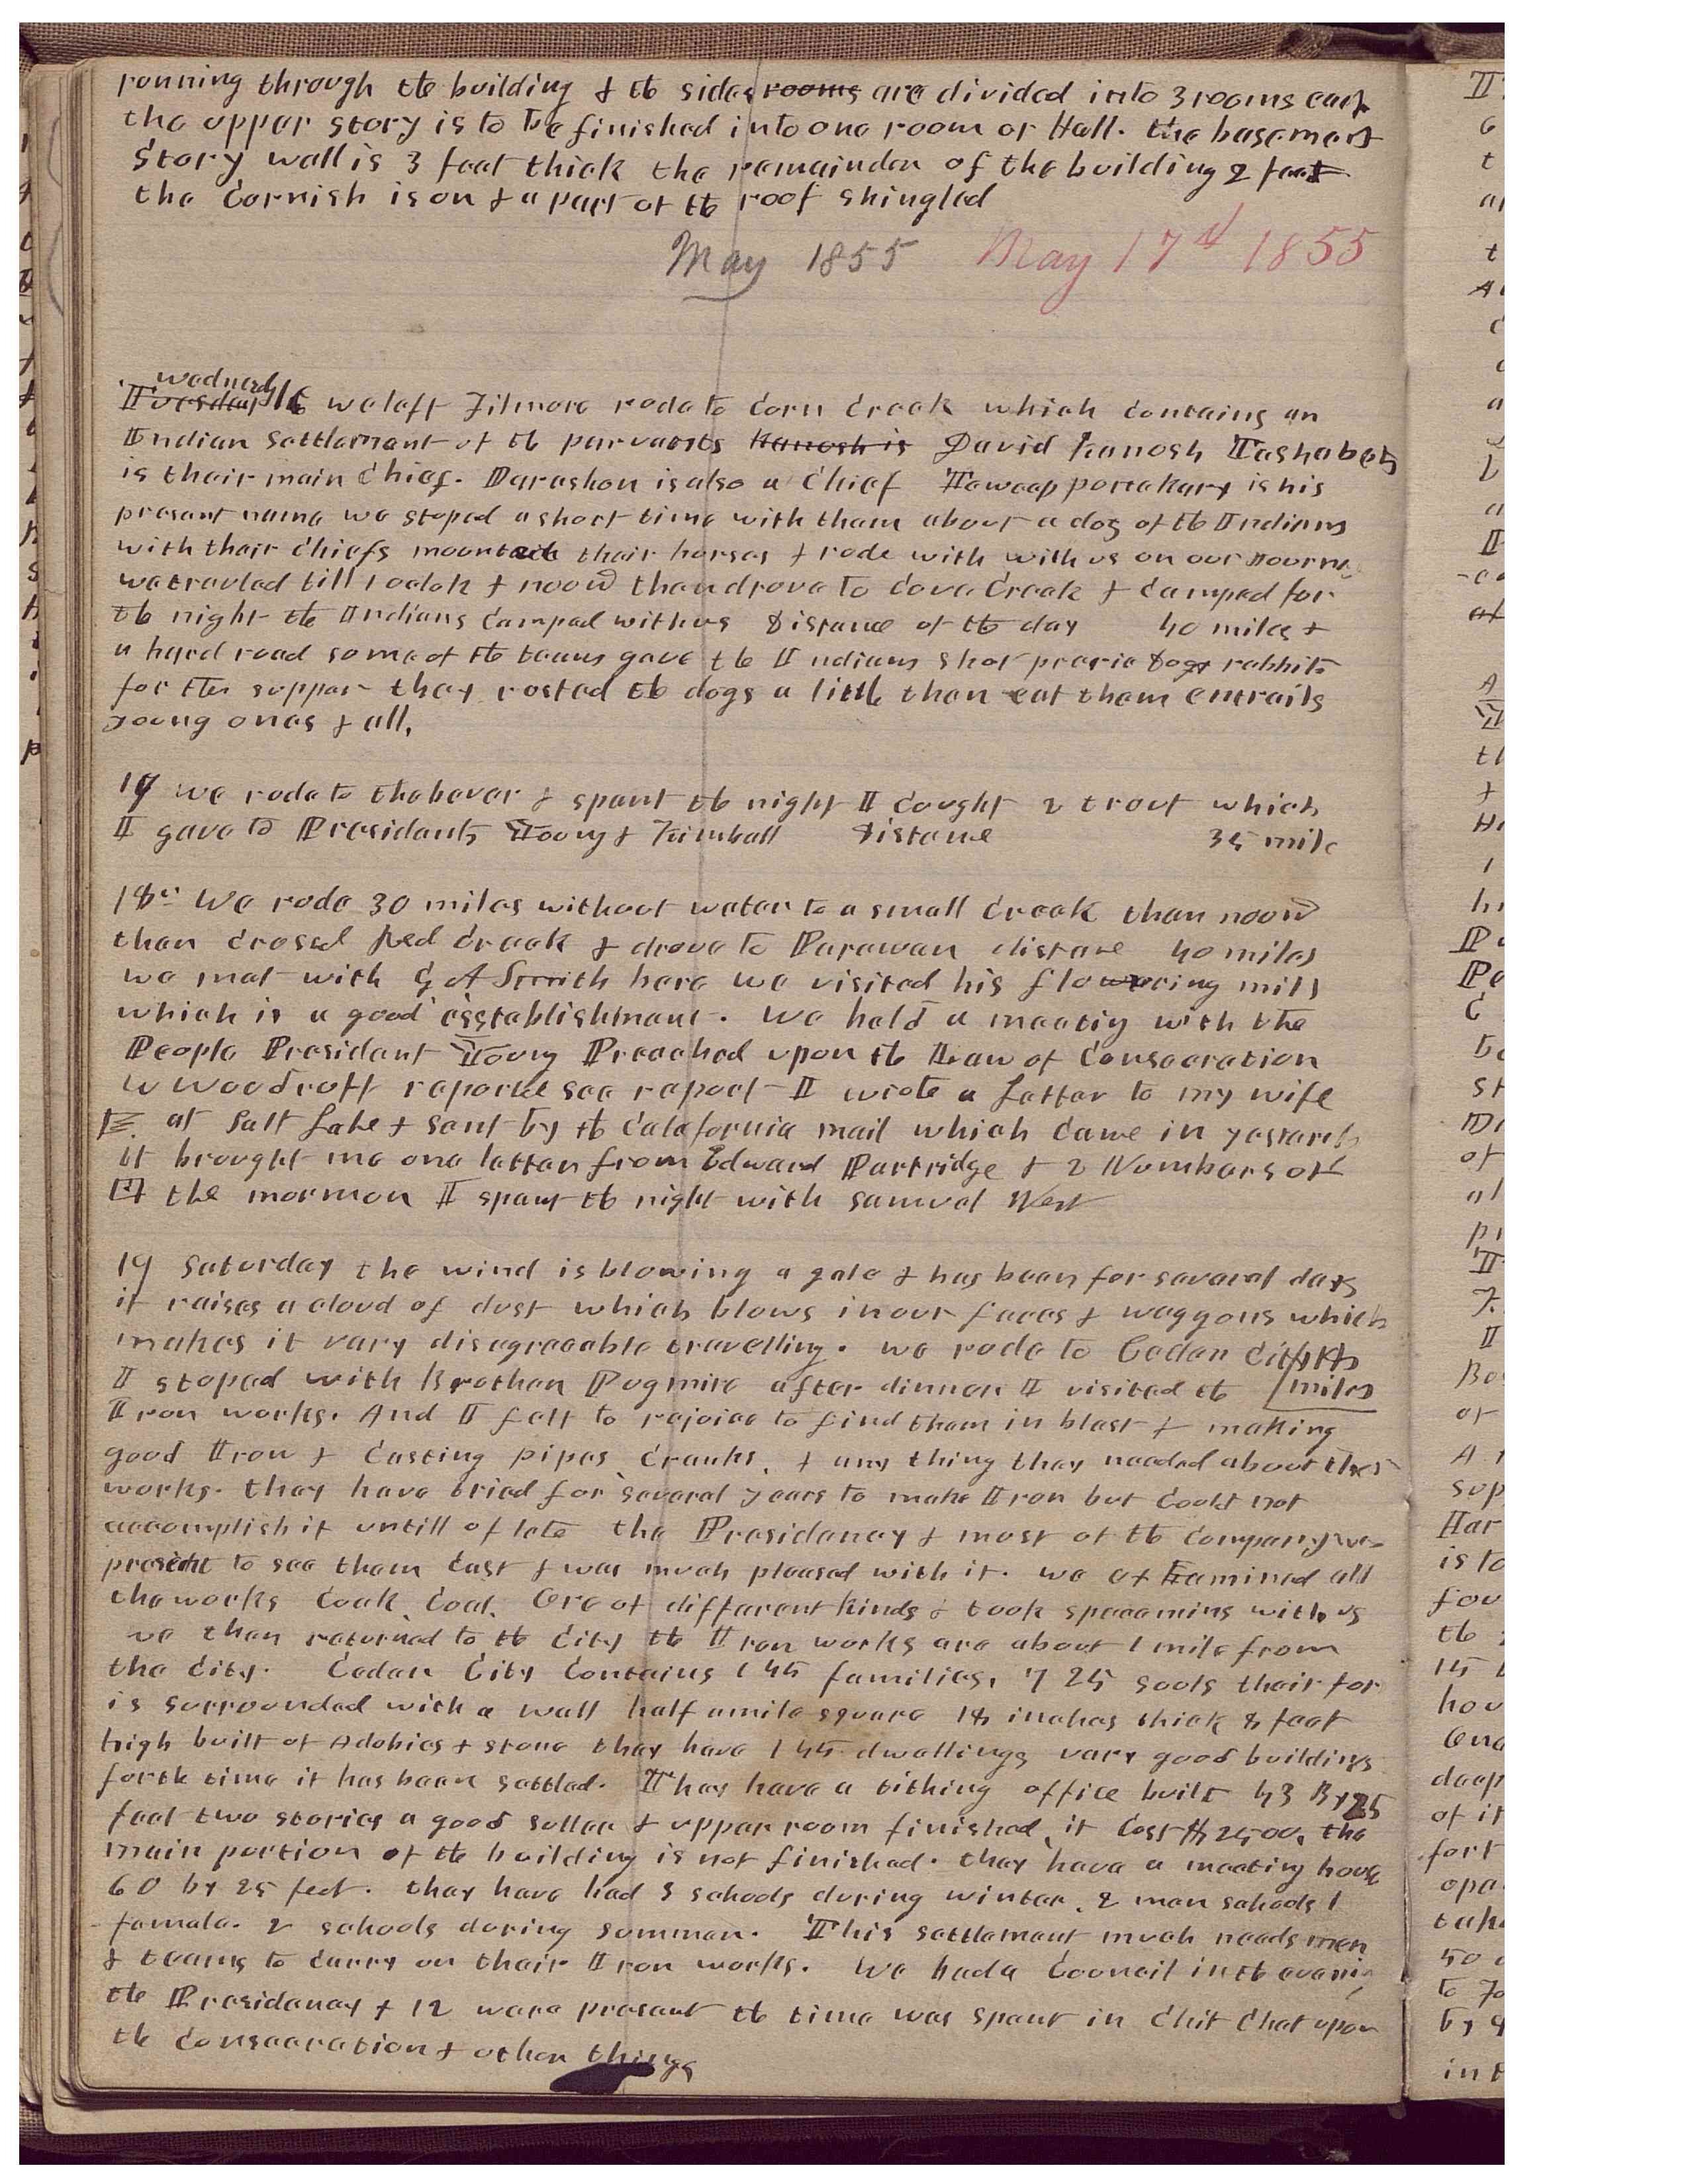 running through the building & the sides rooms are divided into 3 rooms each
the upper story is to be finished into one room or Hall. the basement
Story wall is 3 feet thick the remainder of the building 2 feet
the Cornish is on & a part of the roof shingled
May 1855 May 17th 1855
wednesd
Tuesday 16 we left Filmore rode to Corn Creek which Contains an
Indian Settlement of the parvants Kanosh is David Kanosh Tashabets
is their main Chief. Parashon is also a Chief is his
present name we stoped a short time with them about a doz of the Indians
with their Chiefs mounted their horses & rode with with us on our Journey
we traveled till 1 oclok & noond then drove to Cove Creek & Camped for
the night the Indians Camped with us Distance of the day 40 miles &
a hard road some of the teams gave the Indians Shot prarie Dogs rabbits
for their supper they rosted the dogs a little then eat them entrails
young ones & all,
17 we rode to the bever & spent the night I Cought 2 trout which
I gave to Presidents Young & Kimball Distance 35 mile
18th We rode 30 miles without water to a small Creek then noond
then Crossed Red Creek & drove to Parawan distance 40 miles
we met with G A Smith here we visited his flowering mill
which is a good esstablishment. We held a meeting with the
People President Young Preached upon the Law of Consecration
W Woodruff reported see report I wrote a Letter to my wife
E. at Salt Lake & sent by the Calafornia mail which Came in yesterdy
it brought me one letter from Edward Partridge & 2 Numbers of
the mormon I spent the night with Samuel West
19 Saturday the wind is blowing a gale & has been for several days
it raises a cloud of dust which blows in our faces & waggons which
makes it very disagreeable travelling. we rode to Cedar City 18
I stoped with Brother Pugmire after dinner I visited the /miles
Iron works. And I felt to rejoice to find them in blast & making
good Iron & Casting pipes Cranks, & any thing they needed about their
works. they have tried for several years to make Iron but Could not
accomplish it untill of late the Presidency & most of the Company were
present to see them Cast & was much pleased with it. we exhamined all
the works Coak, Coal, Ore of different kinds & took specemins with us
we then returned to the City the Iron works are about 1 mile from
the City. Cedar City Contains 145 families, 725 souls their for
is surrounded with a wall half a mile square 18 inches thick 8 feet
high built of Adobies & stone they have 145 dwellings very good buildings
for the time it has been settled. They have a tithing office built 43 By 25
feet two stories a good seller & upper room finished, it Cost $2500, the
main portion of the building is not finished. they have a meeting house
60 by 25 feet. they have had 3 schools during winter, 2 men schools 1
female. 2 schools during summer. This settlement much needs men
& teams to Carry on their Iron works. We had a Council in the evening
the Presidency & 12 were present the time was spent in Chit Chat upon
the Consecration & other things